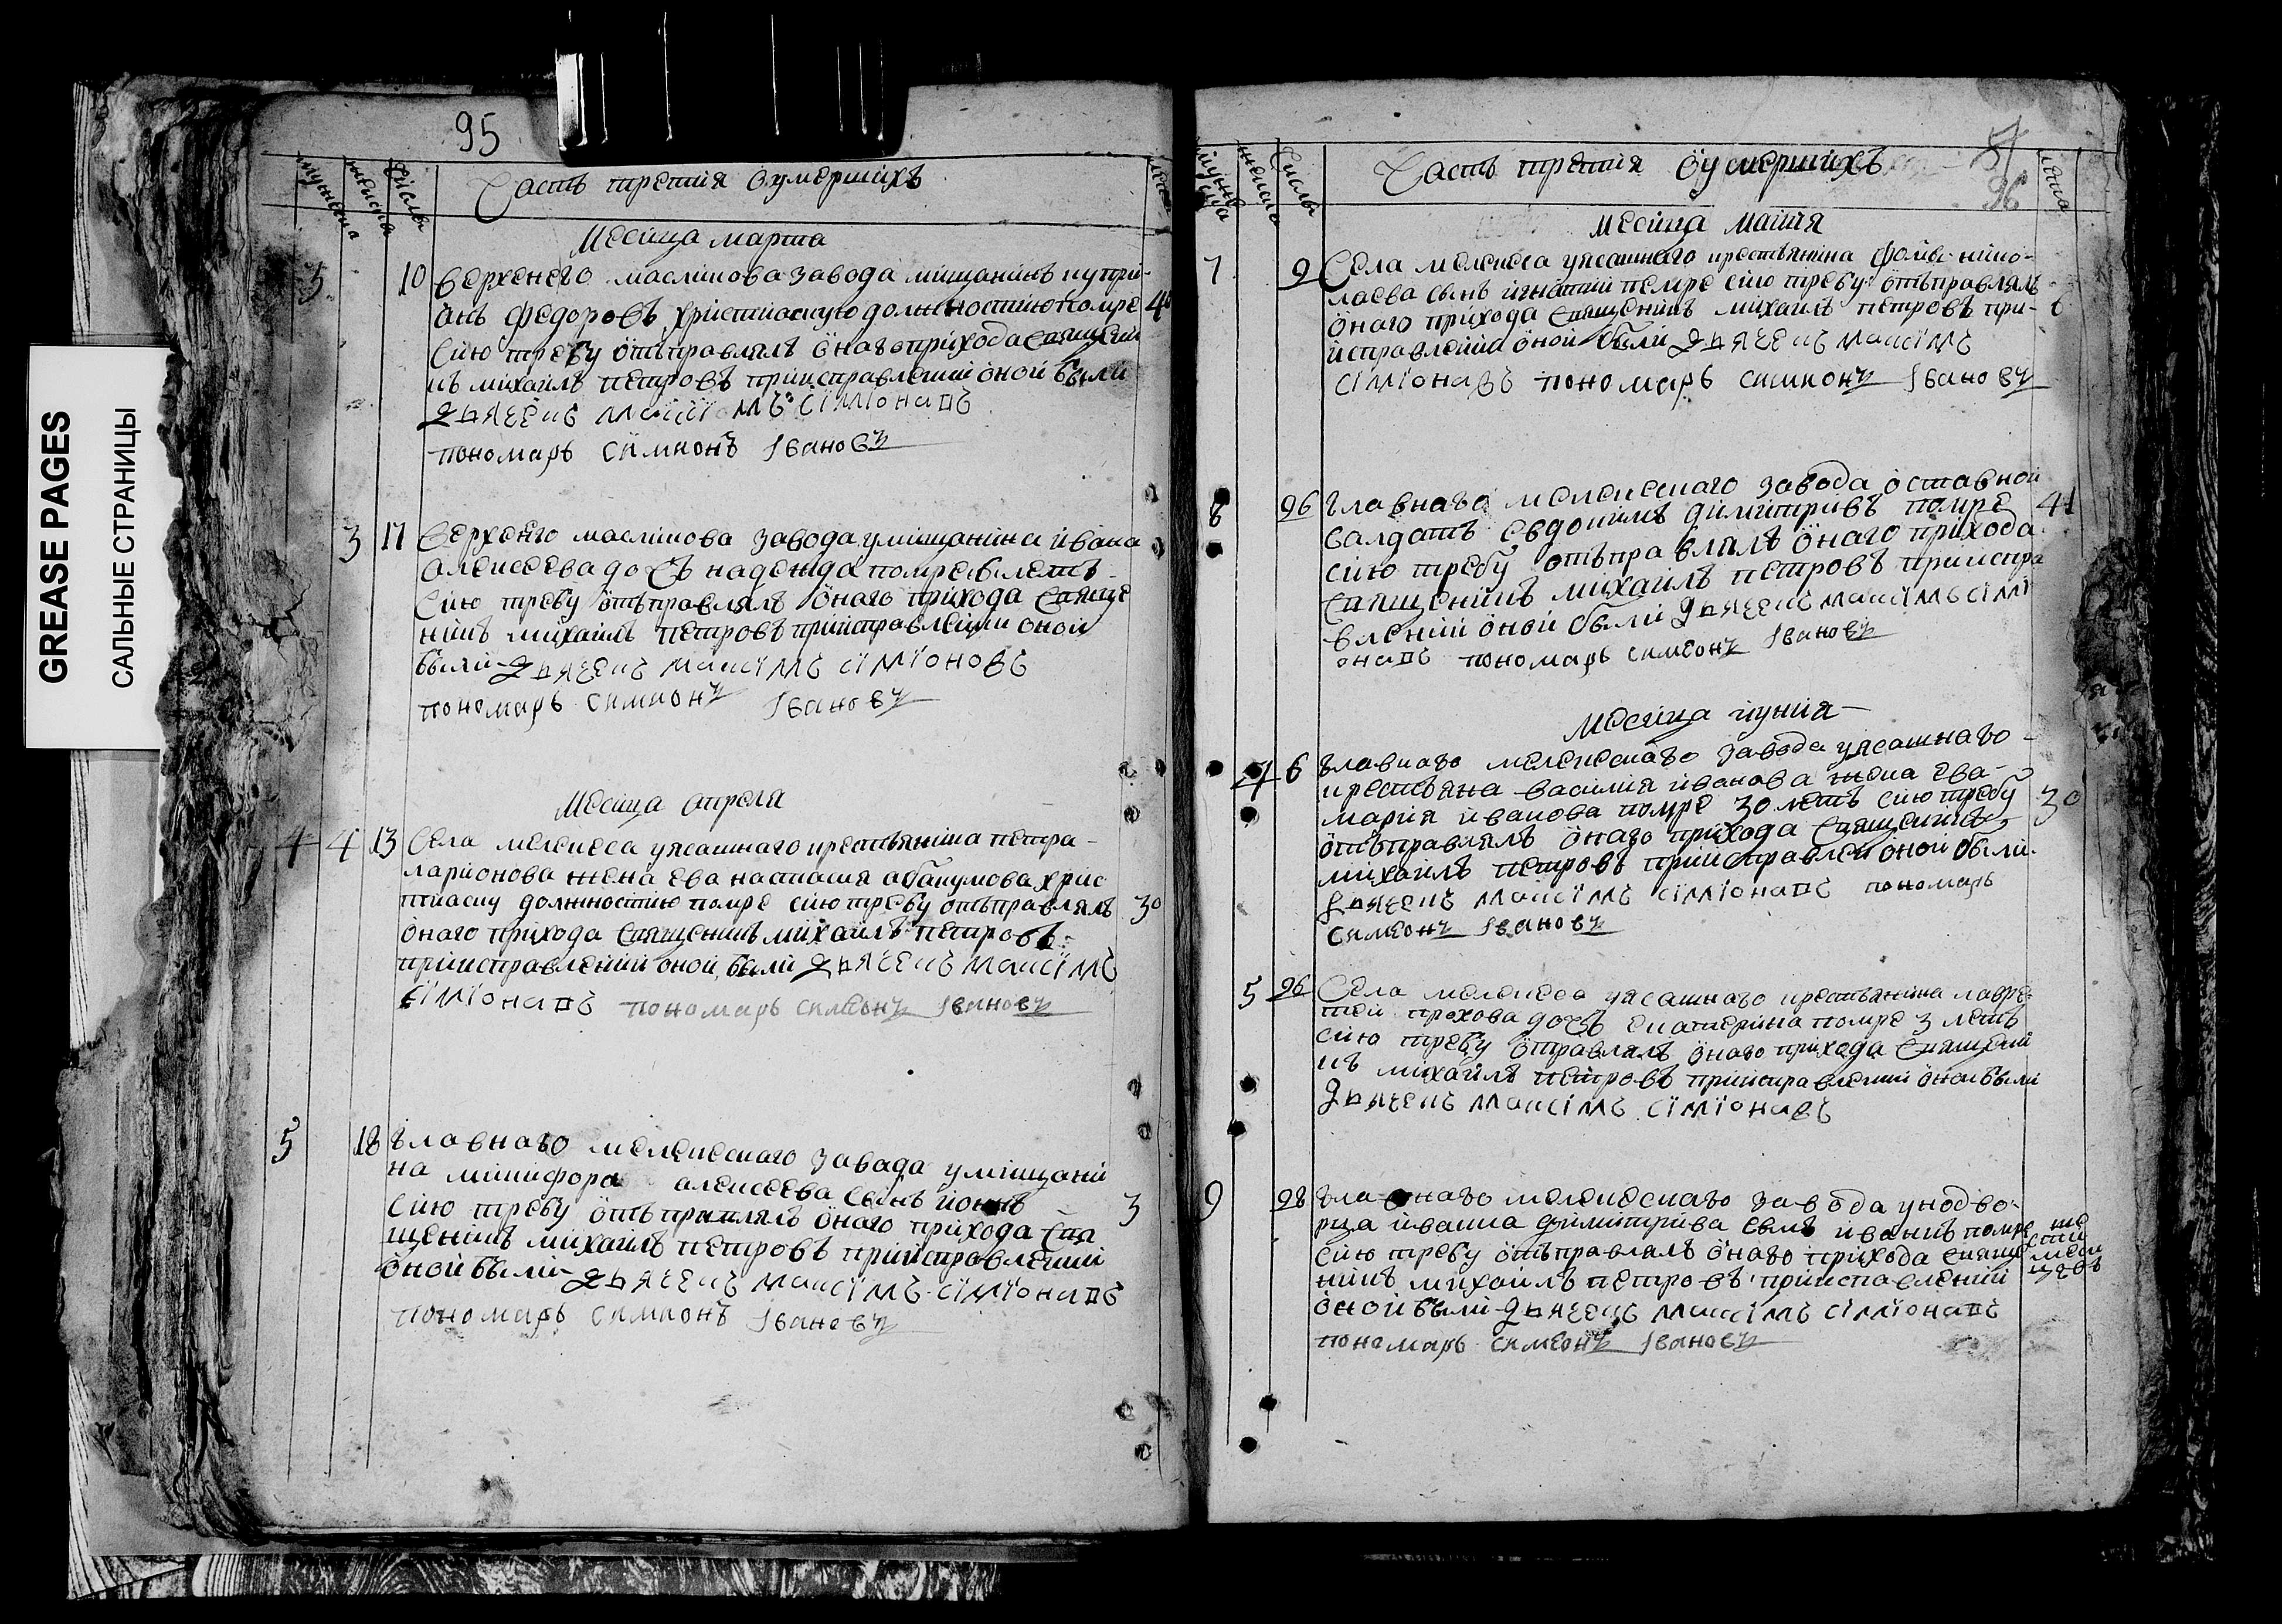 GREASE PAGES
САЛЬНЫЕ СТРАНИЦЫ
95
мужеска
женска
Числы
Часть третия оумершихъ
лета
Месяца марта
3 10 верхенего маслинова завода мищанинъ купри-
анъ федоровъ христианскую должностию помре 40
Сию требу отъправлялъ онаго прихода священи
къ михаилъ петровъ приисправлении оной были
дьячекъ максимъ симионавъ
пономарь симионъ Iвановъ
3 17 Верхенго маслинова завода умищанина ивана
алексеева дочь надежда помре летъ
Сию требу отъправлялъ онаго прихода свяще
никъ михаилъ петровъ приисправлении оной
были дьячекъ максимъ симионовъ
пономарь симионъ Iвановъ
Месяца апреля
4 4 13 Села мелекеса уясашнаго крестьянина петра
ларионова жена ева настасия абакумова хрис
тиаску должностию помре сию требу отъправлялъ 30
онаго прихода священикъ михаилъ петровъ
приисправлении оной были дьячекъ максимъ
симионавъ пономарь симеонъ Iвановъ
5 18 главнаго мелекескаго завада умищани
на микифора алексеева сынъ
Сию требу отъправлялъ онаго прихода свя 3
щеникъ михаилъ петровъ приисправлении
оной были дьячекъ максимъ симионавъ
пономарь симионъ Iвановъ
мужеска
женска
Числы
Часть третия оумершихъ
96
лета
Месяца маия
7 9 Села мелекеса уясашнаго крестьянина фомы нико-
лаева сынъ игнатий помре сию требу отъправлялъ
онаго прихода священикъ михаилъ петровъ при- 6
исправлении оной были дьячекъ максимъ
симионавъ пономарь симионъ Iвановъ
8 26 главнаго мелекескаго завода оставной
салдатъ евдокимъ димитривъ помре 41
сию требу отъправлялъ онаго прихода
священикъ михаилъ петровъ прииспра
влении оной были дьячекъ максимъ сими
онавъ пономарь симеонъ Iвановъ
Месяца иуния
4 6 главнаго мелекескаго завода уясашнаго
крестьяна василия иванова жена ева
мария иванова помре 30 летъ сию требу 30
отъправлялъ онаго прихода священикъ
михаилъ петровъ приисправлеи оной были
дьячекъ максимъ симионавъ пономарь
симеонъ Iвановъ
5 26 Села мелекеса уясашнаго крестьянина лавре
тей прохова дочь екатерина помре 3 летъ
сию требу отправлялъ онаго прихода священи
къ михаилъ петровъ приисправлении оной были
дьячекъ максимъ симионавъ
9 28 главнаго мелекескаго завода уходво-
рца ивана димитрива сынъ иванъ помре ше
сию требу отъправлялъ онаго прихода свяще сти
никъ михаилъ петровъ приисправлении меся
оной были дьячекъ максимъ симионавъ цовъ
пономарь симеонъ Iвановъ